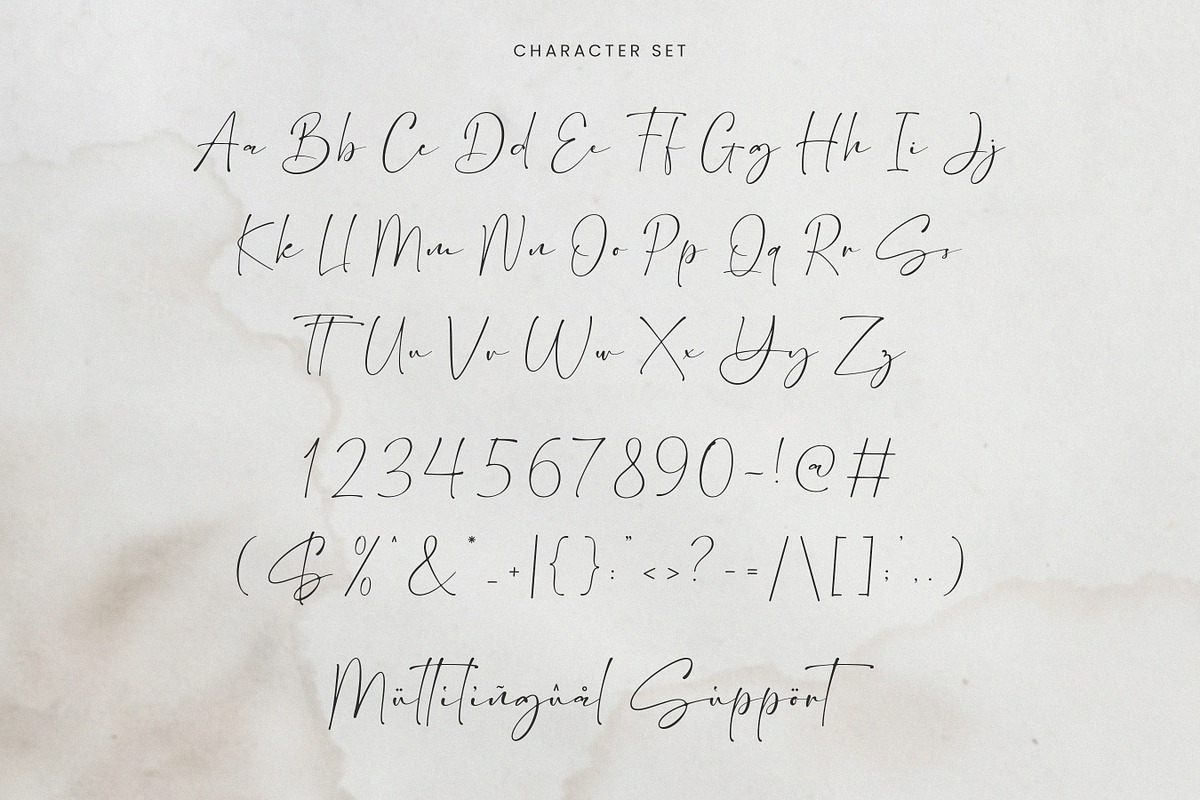 CHARACTER SET
Aa Bb Cc Dd Ee Ff Gg Hh Ii Jj
Kk Ll Mm Nn Oo Pp Qq Rr Ss
Tt Uu Vv Ww Xx Yy Zz
1234567890-!@#
($%^&*_+|{}:"<>?-=/\[];',.)
Müttiliñgûål Súppört